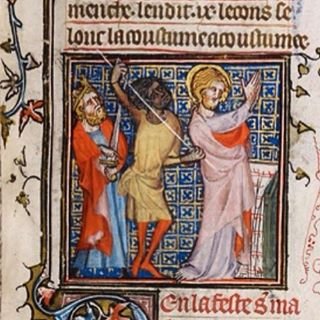 menche. lendit. ix. lecons se
lonc la coustume acoustumee
En la feste s ma